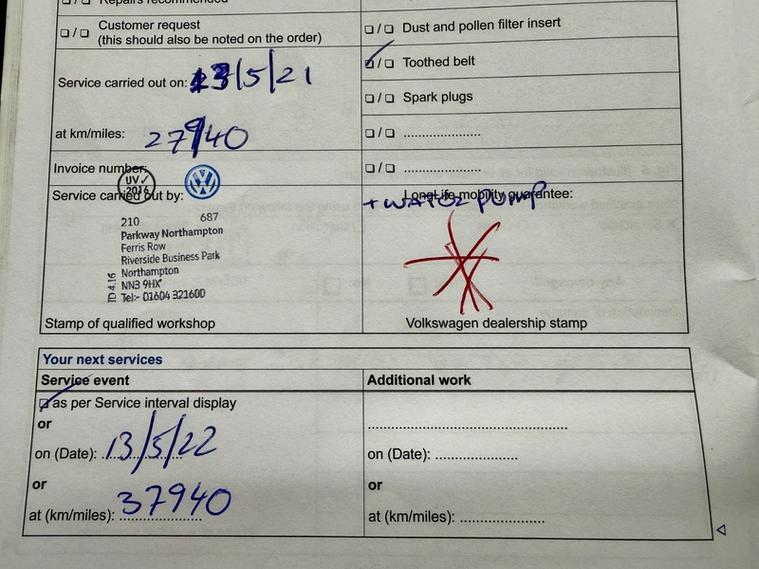 Repairs recommended
Customer request
(this should also be noted on the order)
Dust and pollen filter insert
Service carried out on: 13/5/21
Toothed belt
Spark plugs
at km/miles: 27940
Invoice number:
UV ✓
2016
Service carried out by:
LongLife mobility guarantee:
+ WATER PUMP
210 687
Parkway Northampton
Ferris Row
Riverside Business Park
Northampton
NN3 9HX
Tel:- 01604 321600
ID 4.16
Stamp of qualified workshop
Volkswagen dealership stamp
Your next services
Service event
Additional work
as per Service interval display
or
on (Date): 13/5/22
on (Date):
or
or
at (km/miles): 37940
at (km/miles):